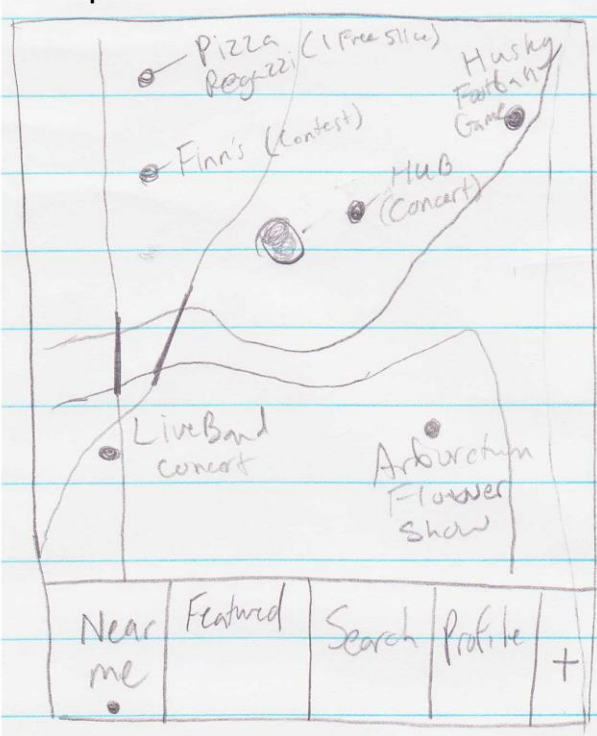 Pizza
Ragazzi (1 Free Slice)
Husky
Football
Game
Finn's (Contest)
HUB
(Concert)
Live Band
concert
Arboretum
Flower
Show
Near
me
Featured
Search
Profile
+